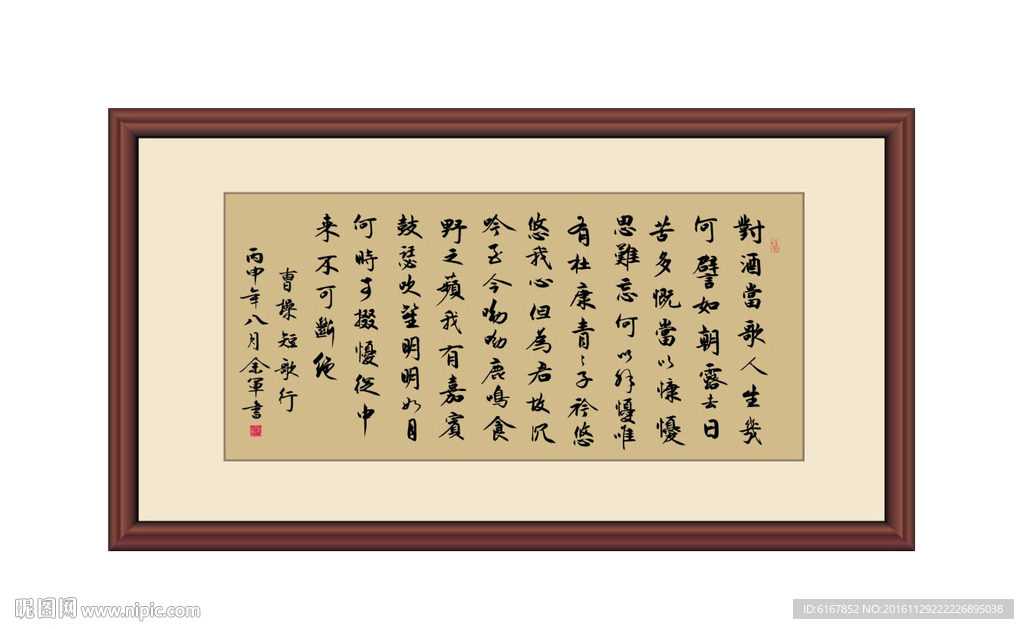 對酒當歌人生幾
何譬如朝露去日
苦多慨當以慷憂
思難忘何以解憂唯
有杜康青〻子衿悠
悠我心但為君故沉
吟至今呦呦鹿鳴食
野之蘋我有嘉賓
鼓瑟吹笙明明如月
何時可掇憂從中
来不可斷絶
曹操短歌行
丙申年八月余軍书
昵图网 www.nipic.com
ID:6167852 NO:20161129222226895038